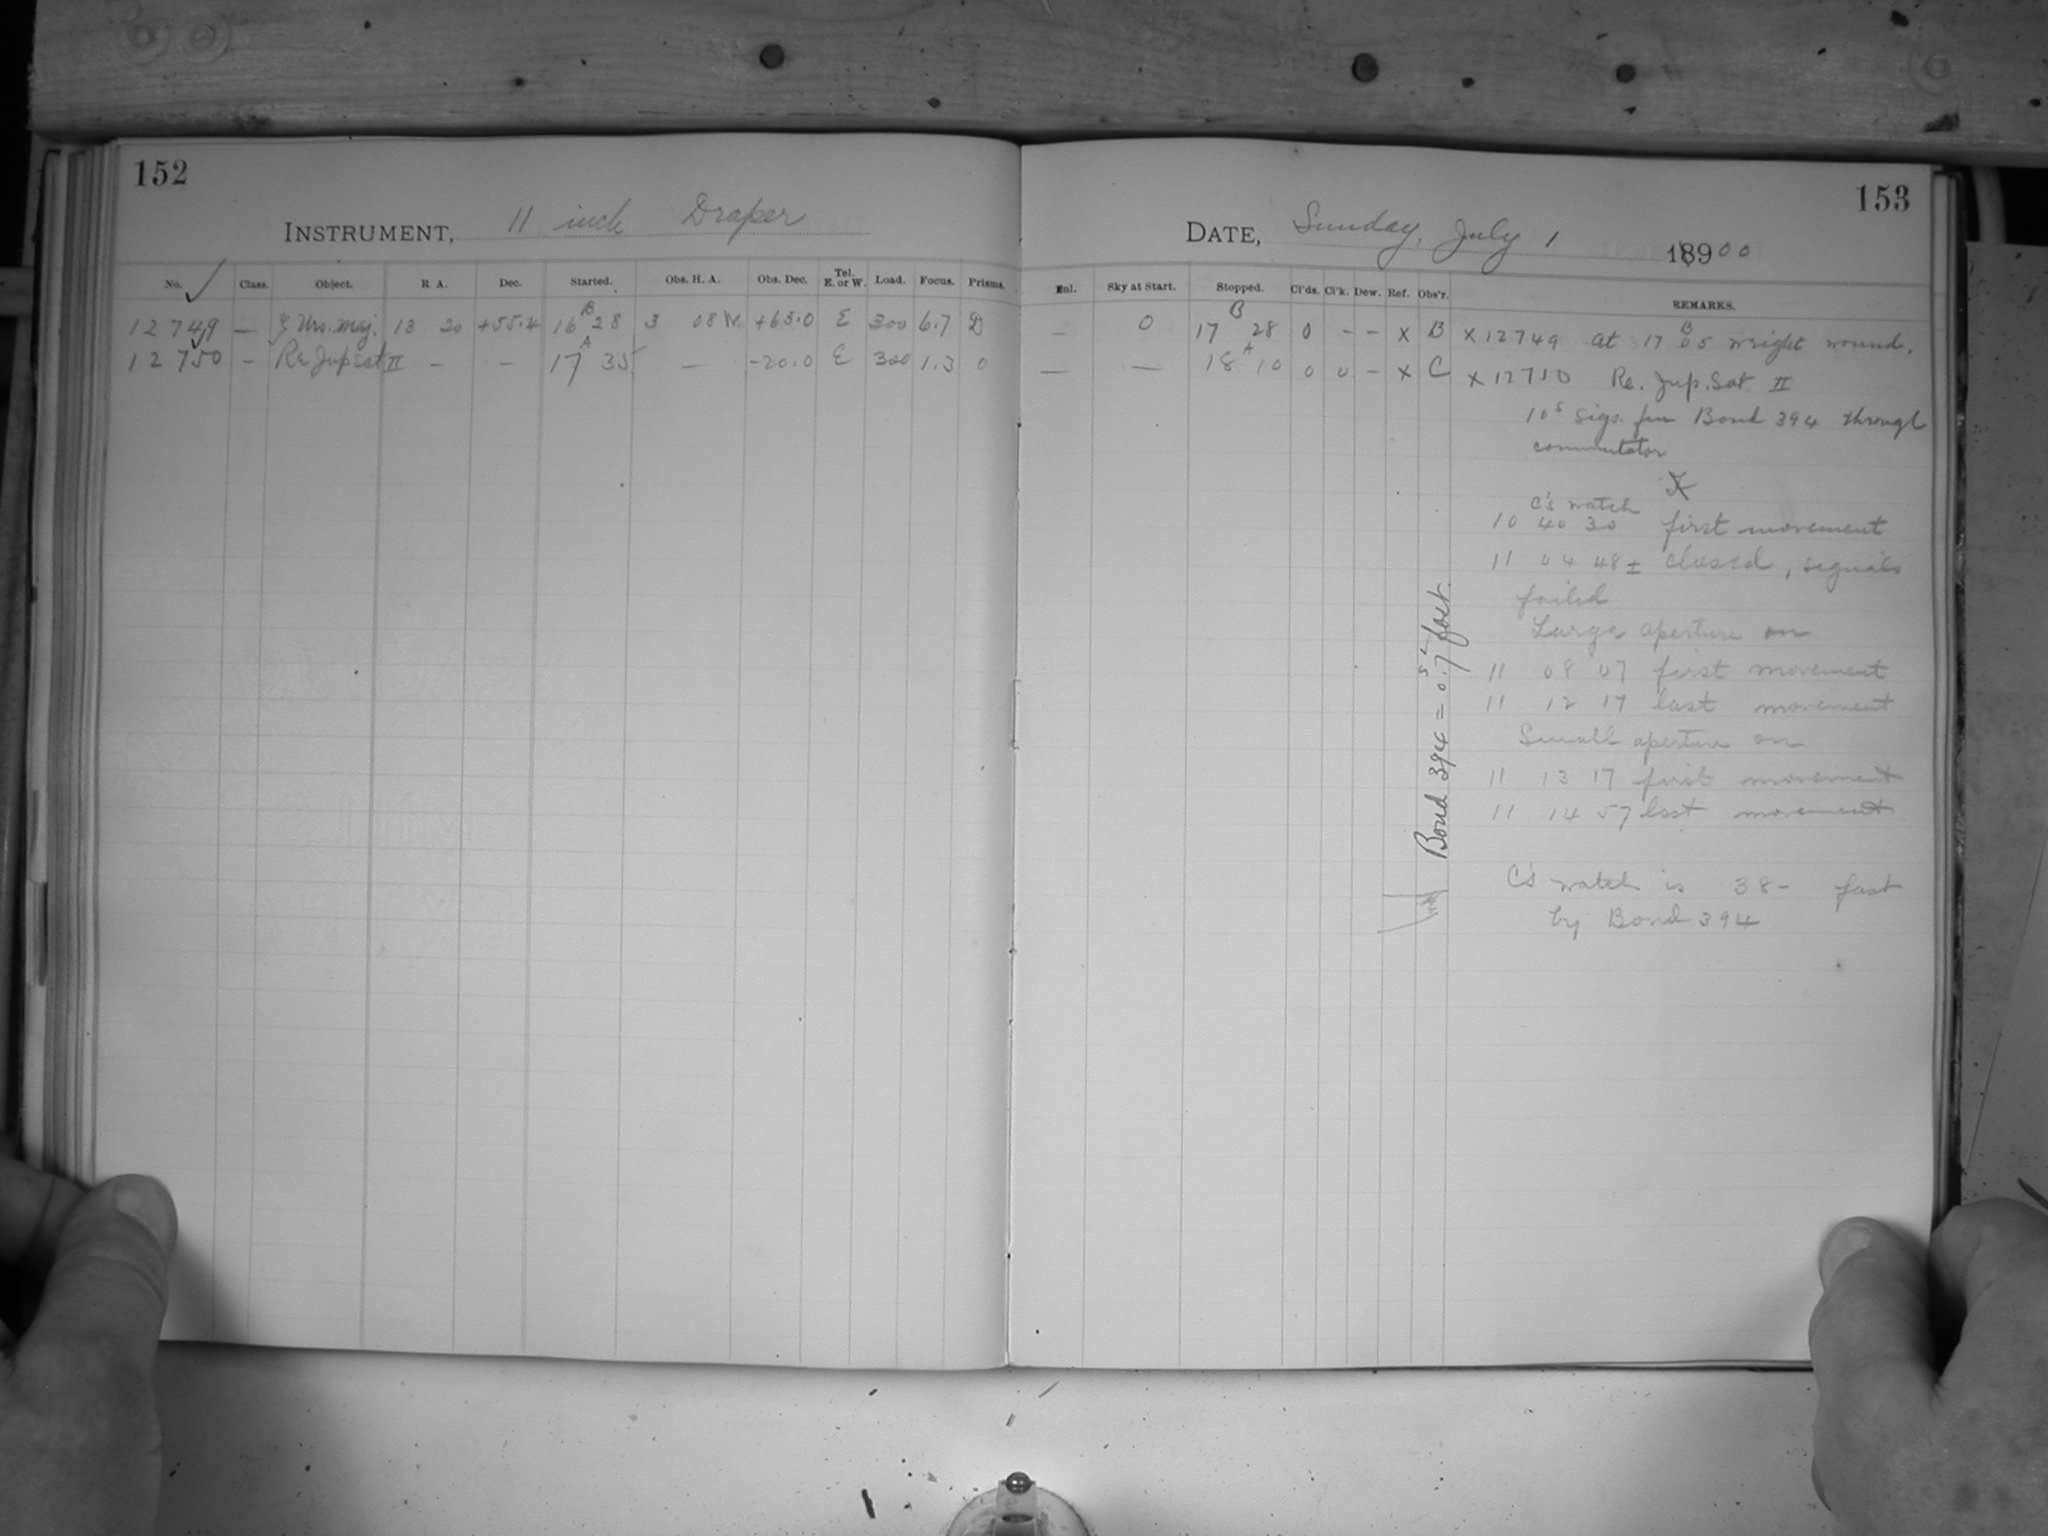 152
INSTRUMENT, 11 inch Draper
No. Class. Object. R. A. Dec. Started. Obs. H. A. Obs. Dec. Tel. E. or W. Load. Focus. Prisms.
12749 — ζ Urs. Maj. 13 20 +55.4 16 B 28 3 08 W +63.0 E 300 6.7 D
12750 - Re Jup Sat II - - 17 A 35 — -20.0 E 300 1.3 0
153
DATE, Sunday, July 1 1890 0
Enl. Sky at Start. Stopped. Cl'ds. Cl'k. Dew. Ref. Obs'r. REMARKS.
— 0 17 B 28 0 - - x B x 12749 at 17 B 05 weight wound.
— — 18 A 10 0 0 - x C x 12750 Re. Jup. Sat. II
10s sigs. fm Bond 394 through
commutator
C's watch
10 40 30 first movement
11 04 48± closed, signals
failed
Large aperture on
11 08 07 first movement
11 12 17 last movement
Small aperture on
11 13 17 first movement
11 14 57 last movement
C's watch is 38- fast
by Bond 394
Bond 394 = 0s.7 fast.